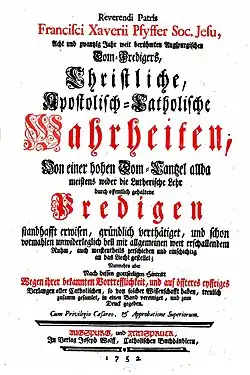 Reverendi Patris
Francisci Xaverii Pfyffer Soc. Jesu,
Acht und zwantzig Jahr weit berühmten Augspurgischen
Dom-Predigers,
Christliche,
Apostolisch-Catholische
Wahrheiten,
Von einer hohen Dom-Cantzel allda
meistens wider die Lutherische Lehr
durch offentlich gehaltene
Predigen
standhafft erwisen, gründlich verthätiget, und schon
vormahlen unwiderleglich
Ruhm, auch
das Liecht gestellet;
Nunmehro aber
Nach dessen gottseeligen Hintritt
Wegen ihrer bekannten Vortrefflichkeit, und auf öffteres eyffriges
Verlangen aller Catholischen, so von solcher Wissenschafft haben, treulich
zusamm gesamlet, in einen Band vereiniget, und zum
Druck gegeben.
Cum Privilegio Cæsareo, & Approbatione Superiorum.
AUGSPURG, und YNNSPRUCK,
In Verlag Joseph Wolff, Catholischen Buchhändlers,
1752.